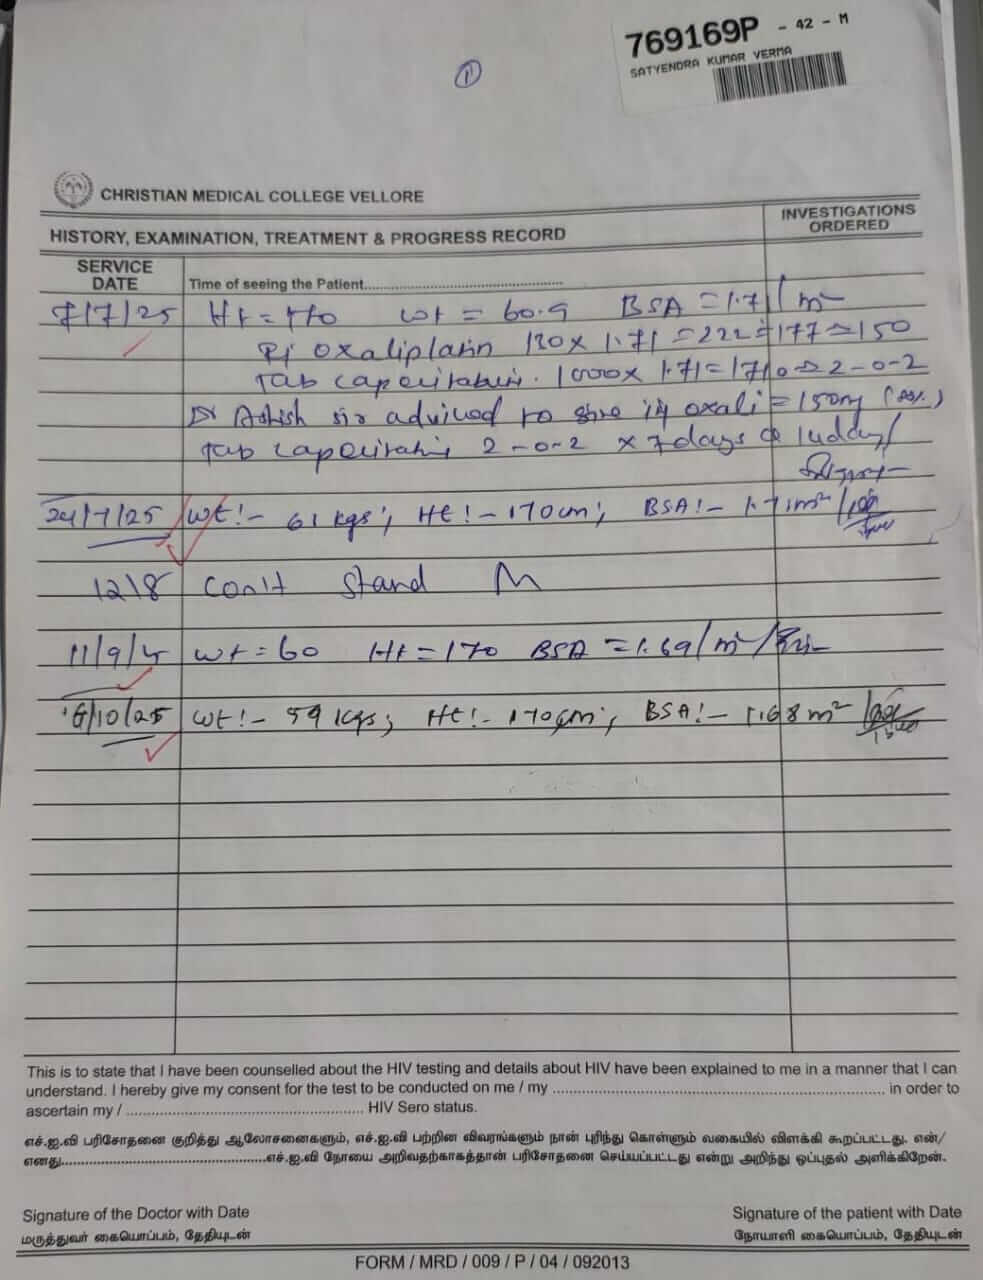 769169P - 42 - M
SATYENDRA KUMAR VERMA
1
CHRISTIAN MEDICAL COLLEGE VELLORE
HISTORY, EXAMINATION, TREATMENT & PROGRESS RECORD
INVESTIGATIONS ORDERED
SERVICE DATE
Time of seeing the Patient
7/7/25 Ht = 170 wt = 60.9 BSA = 1.71 m²
oxaliplatin 130 x 1.71 = 222 = 177 ≃ 150
Tab 1000 x 1.71 = 1710 2-0-2
Dr Ashish sir advised to give inj oxali = 150mg
Tab 2-0-2 x 7 days
24/7/25 Wt:- 61 kgs; Ht:- 170cm; BSA:- 1.71m²
12/8 cont stand
11/9/25 wt = 60 Ht = 170 BSA = 1.69/m²
6/10/25 Wt:- 59 kgs; Ht:- 170cm; BSA:- 1.68 m²
This is to state that I have been counselled about the HIV testing and details about HIV have been explained to me in a manner that I can
understand. I hereby give my consent for the test to be conducted on me / my in order to
ascertain my / HIV Sero status.
எச்.ஐ.வி பரிசோதனை குறித்து ஆலோசனைகளும், எச்.ஐ.வி பற்றின விவரங்களும் நான் புரிந்து கொள்ளும் வகையில் விளக்கி கூறப்பட்டது. என்/
எனது எச்.ஐ.வி நோயை அறிவதற்காகத்தான் பரிசோதனை செய்யப்பட்டது என்று அறிந்து ஒப்புதல் அளிக்கிறேன்.
Signature of the Doctor with Date
மருத்துவர் கையொப்பம், தேதியுடன்
Signature of the patient with Date
நோயாளி கையொப்பம், தேதியுடன்
FORM / MRD / 009 / P / 04 / 092013